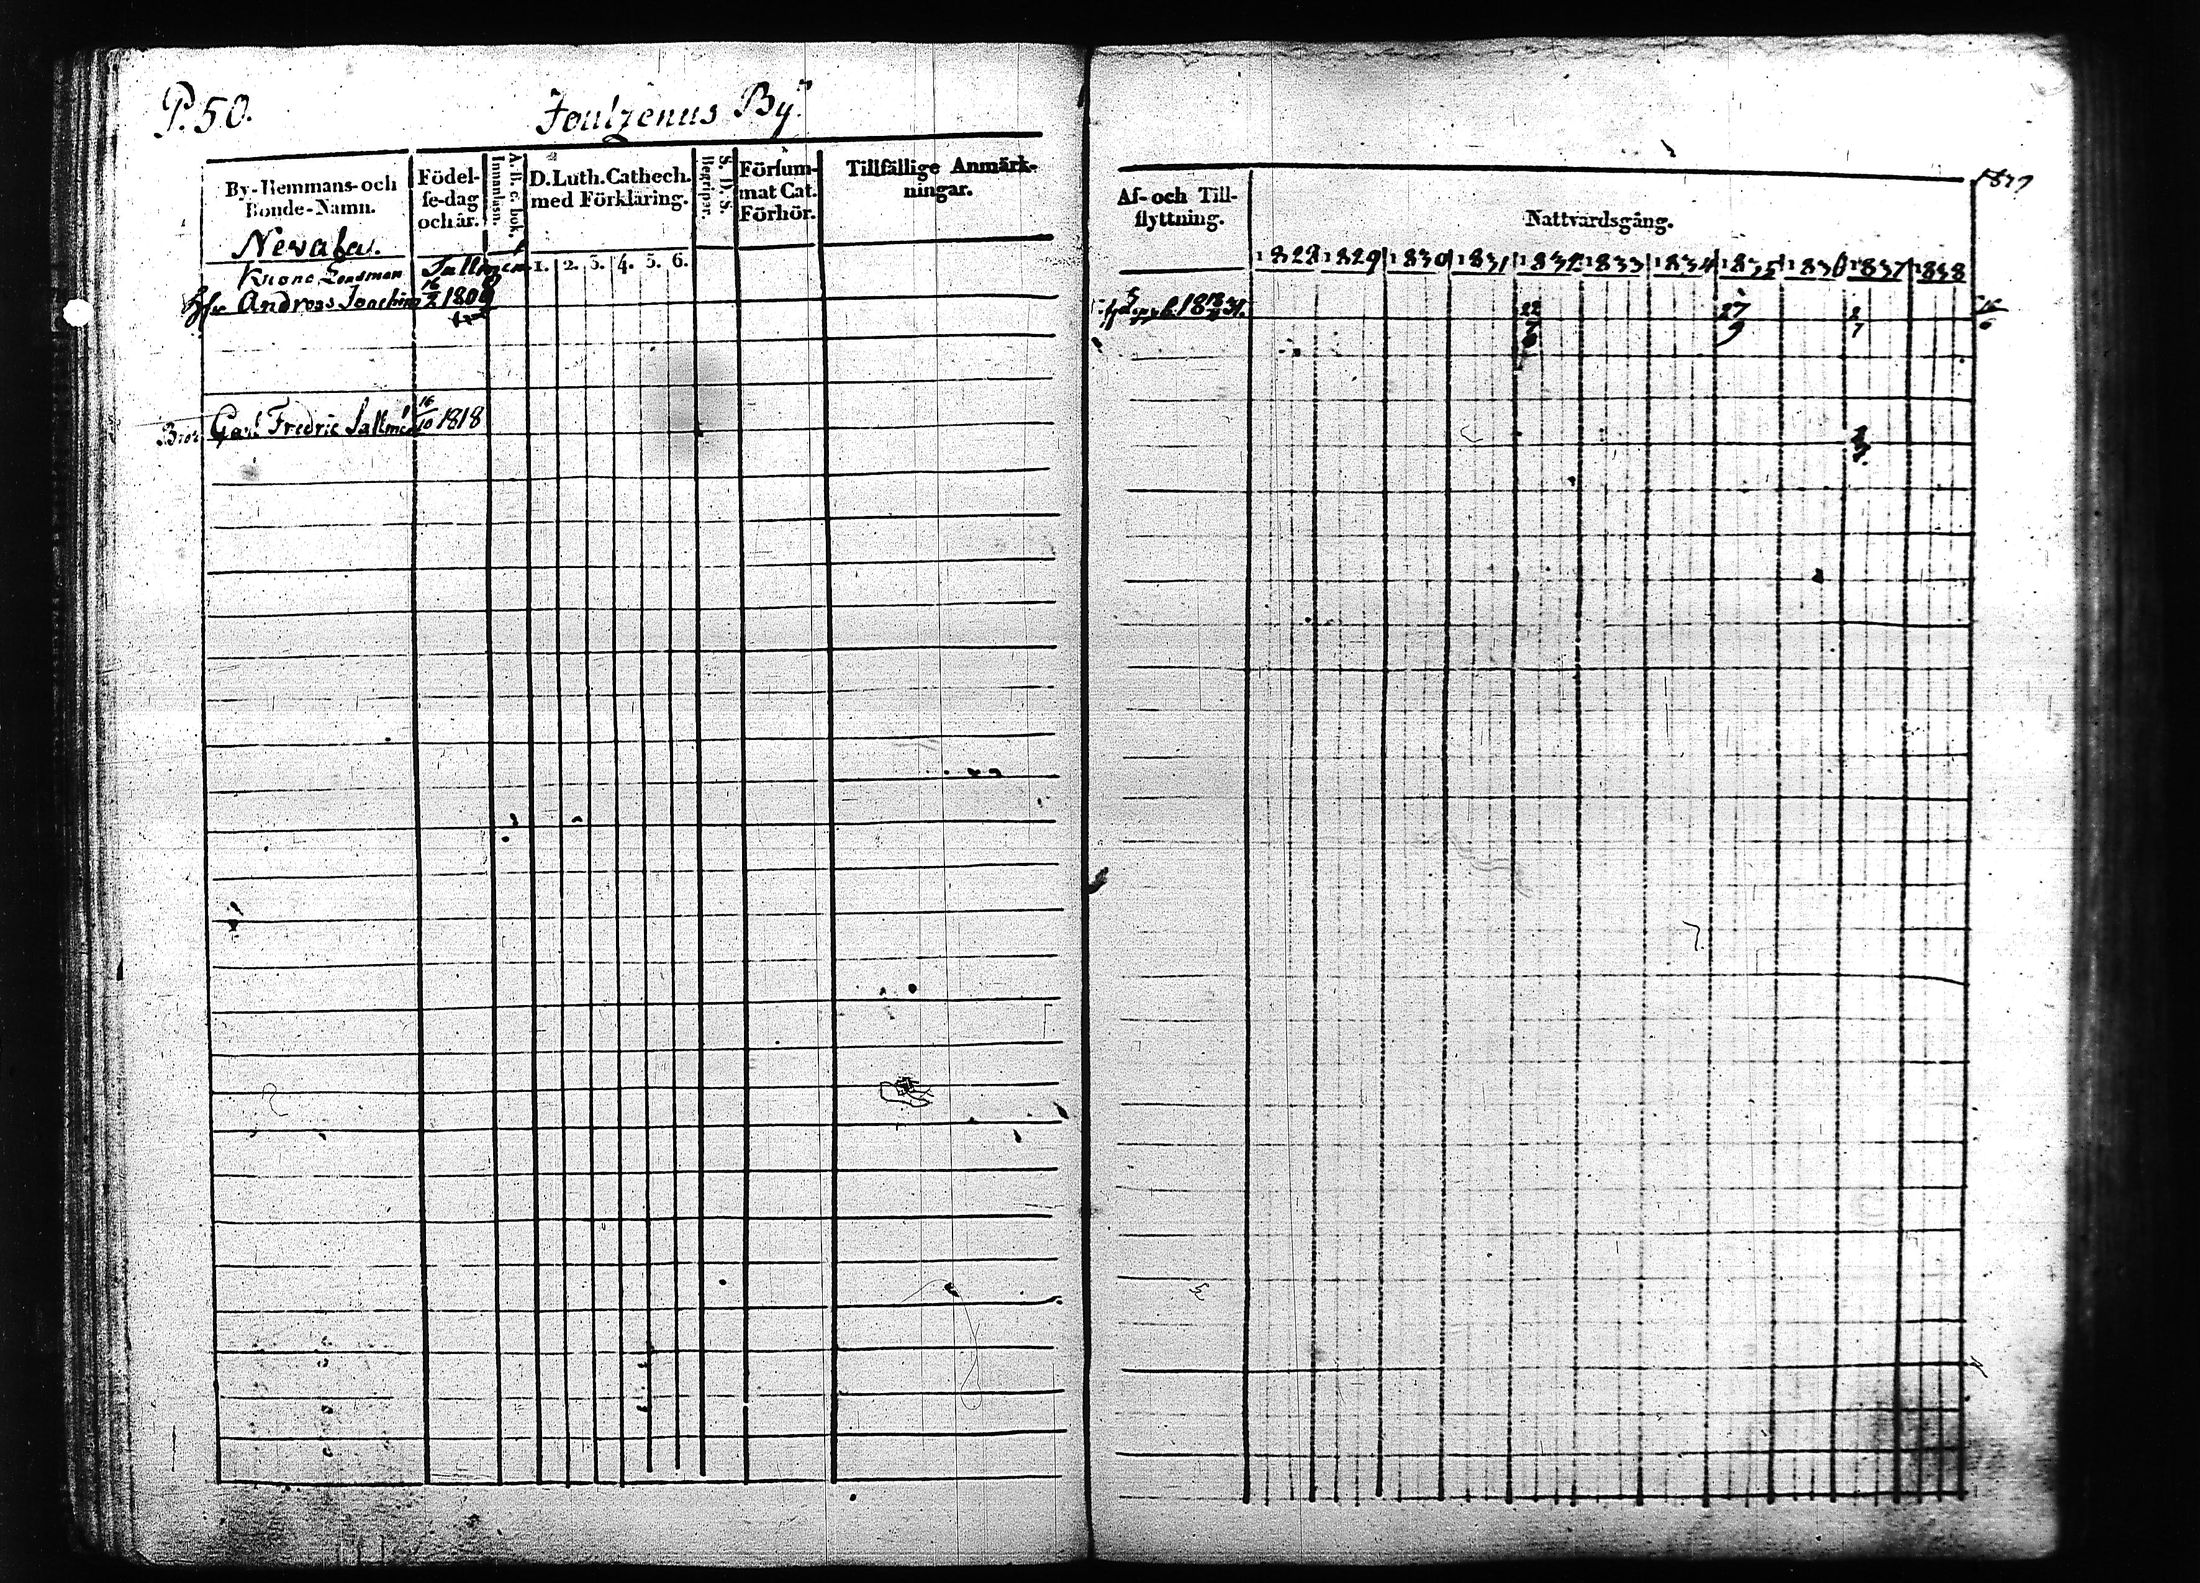 P. 50.
Joulzenus By.
By-Hemmans-och Bonde-Namn.
Födel-se-dag och år.
A. b. c. bok. Innanläsn.
D. Luth. Cathech. med Förkläring.
S. D. S. Begriper.
Försum-mat Cat. Förhör.
Tillfällige Anmärk-ningar.
1. 2. 3. 4. 5. 6.
Nevala.
Krono Lensman Tallmén
Andreas Joachim 16/2 1809
Carl Fredric Tallmén 16/10 1818
Af- och Till-flyttning.
Nattvardsgång.
1828 1829 1830 1831 1832 1833 1834 1835 1836 1837 1838
22/7 27/9 2/7 16/6